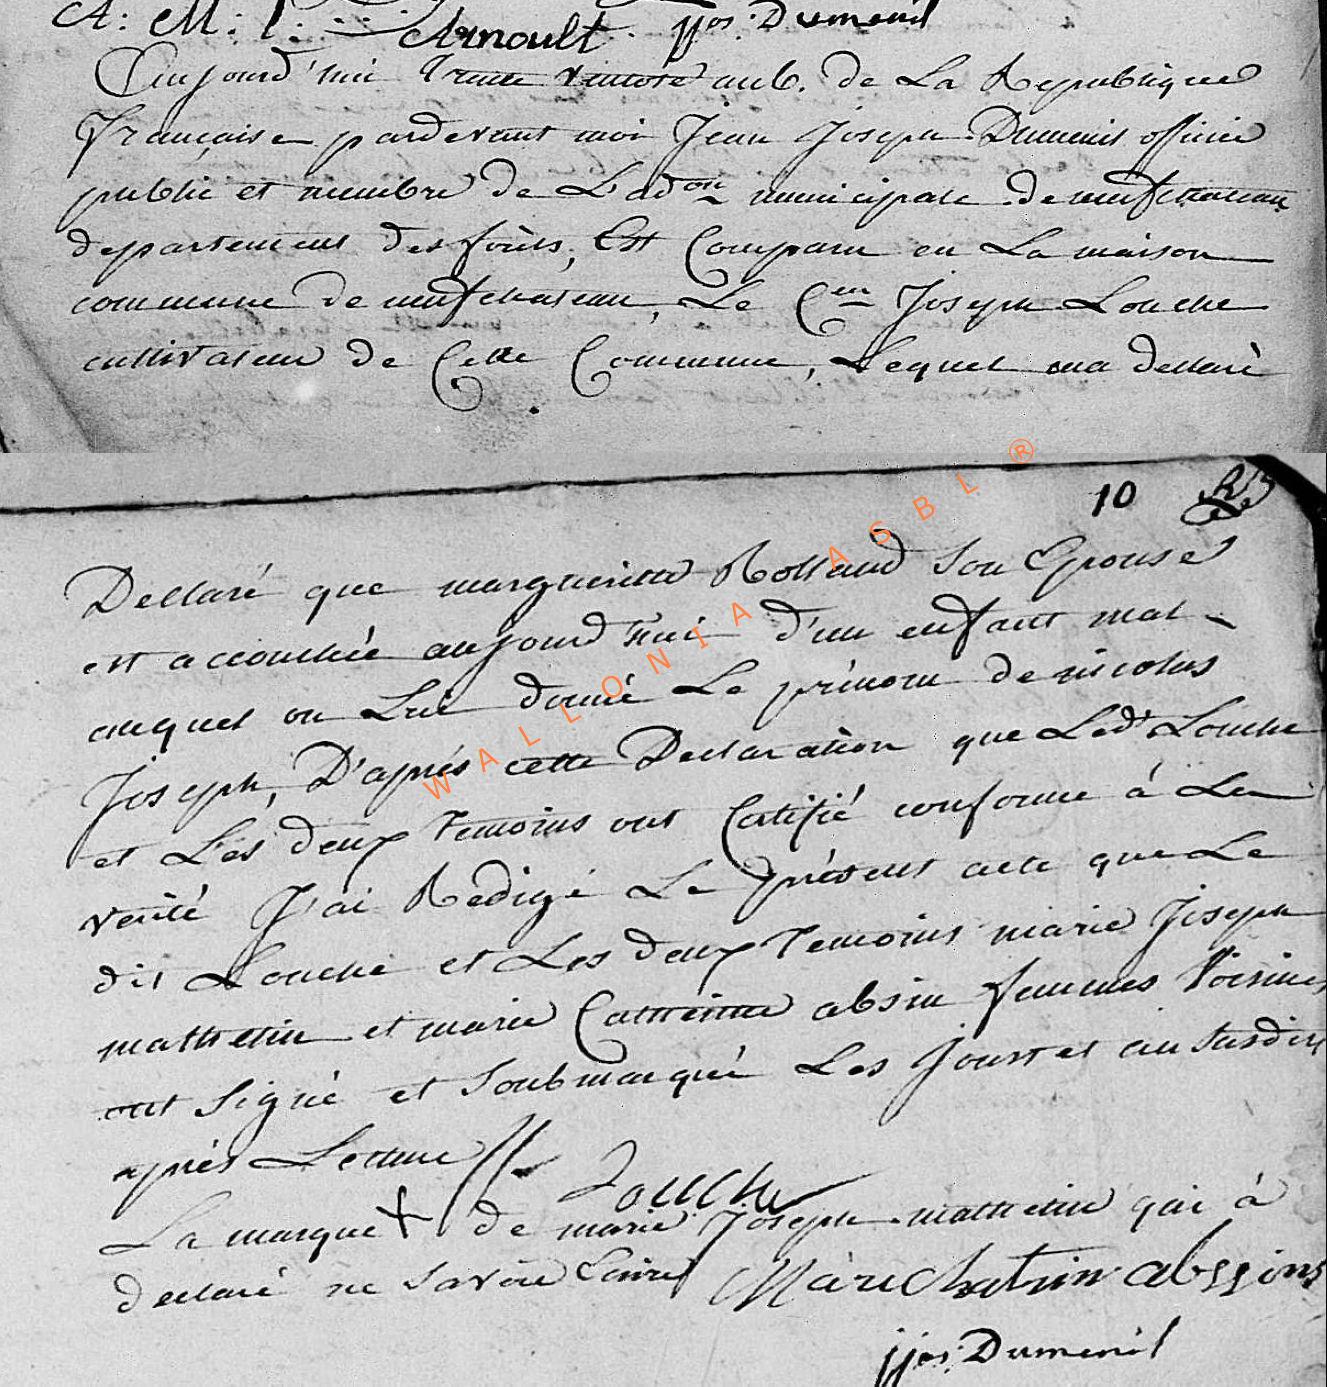 A: M: Arnault. jjos: Dumenil
Aujourd'hui trente ventose an 6. de La Republique
française pardevant moi Jean Joseph Dumenil officier
public et membre de L'adon municipale de neufchateau
departement des forêts, Est Comparu en La maison
commune de neufchateau, Le Cen Joseph Louche
cultivateur de Cette Commune, Lequel ma declaré
10
Declaré que margueritte Rolland son Epouse
est accouchée aujourd'hui d'un enfant mal
auquel on Lui donné Le prénom de nicolas
Joseph, D'aprés cette Declaration que Ledt Louche
et Les deux temoins ont Certifié conforme à La
verité J'ai Redigé Le présent acte que Le
dit Louche et Les deux temoins marie Joseph
mathelin et marie Catherine absin femmes Voisines
ont signé et soubmarqué Les Jour et an susdits
aprés Lecture //. Louche
La marque + de marie Joseph mathelin qui à
declaré ne savoir Ecrire Marie Chatrin abssins
jjos: Dumenil
WALLONIA ASBL ®